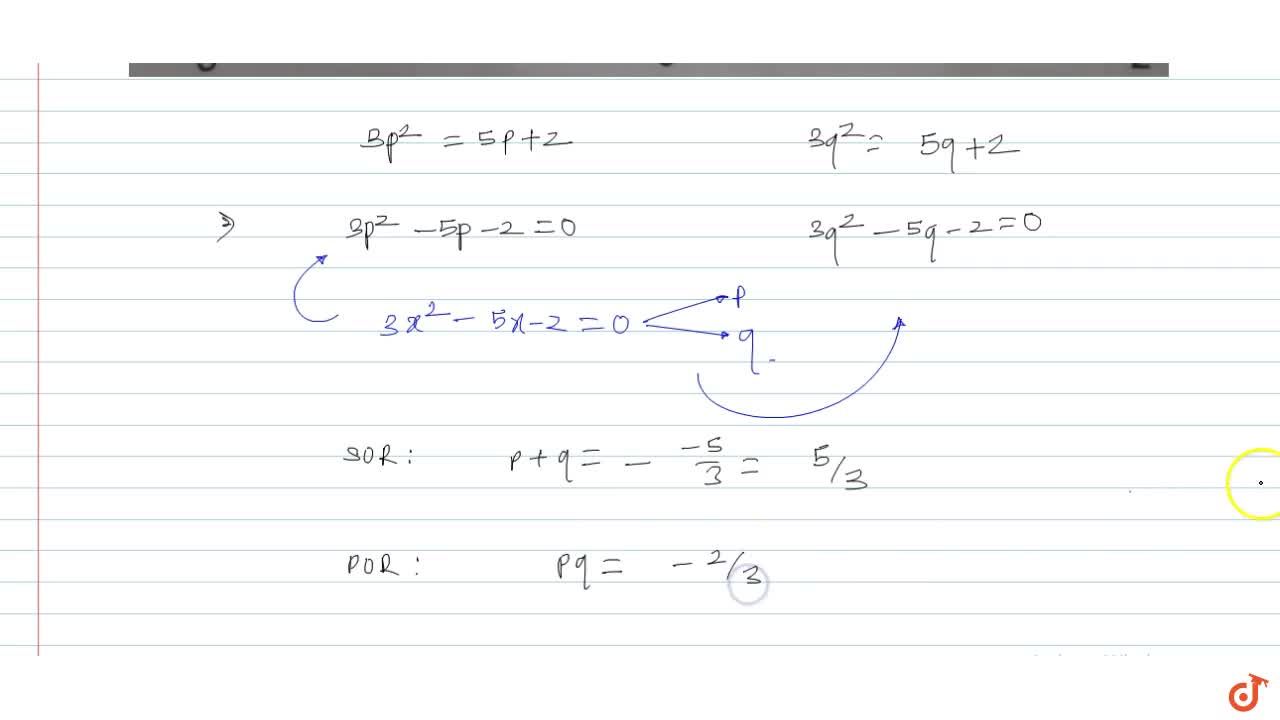 3p² = 5p+2 3q² = 5q+2
⇒ 3p² -5p-2=0 3q² -5q-2=0
3x² - 5x-2=0 p
q
SOR: p+q= - -5/3 = 5/3
POR: pq= -2/3